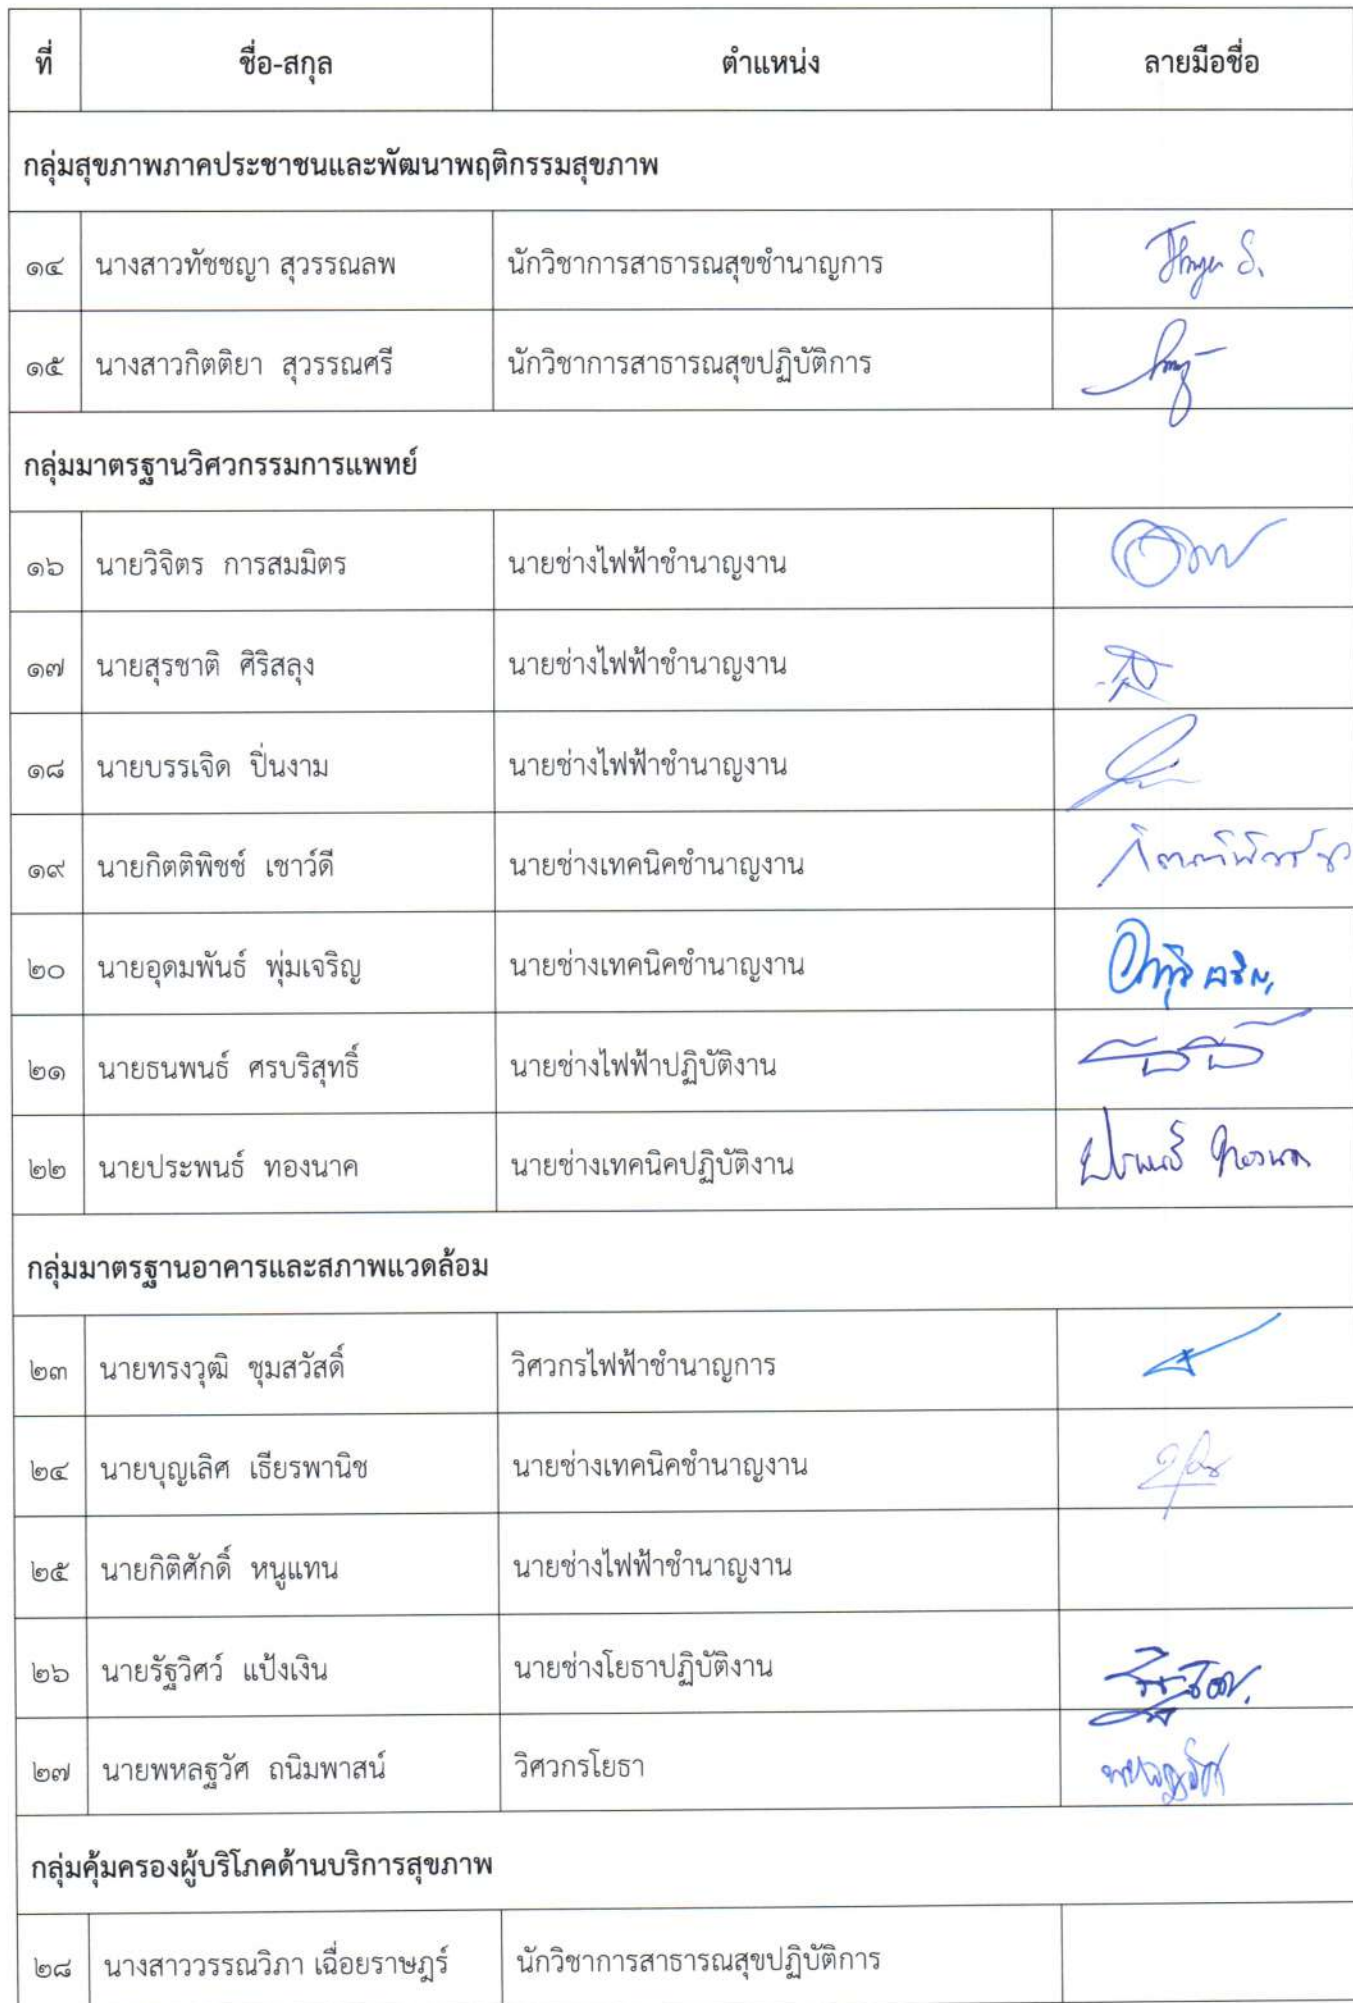 ที่ ชื่อ-สกุล ตำแหน่ง ลายมือชื่อ
กลุ่มสุขภาพภาคประชาชนและพัฒนาพฤติกรรมสุขภาพ
๑๔ นางสาวทัชชญา สุวรรณลพ นักวิชาการสาธารณสุขชำนาญการ
๑๕ นางสาวกิตติยา สุวรรณศรี นักวิชาการสาธารณสุขปฏิบัติการ
กลุ่มมาตรฐานวิศวกรรมการแพทย์
๑๖ นายวิจิตร การสมมิตร นายช่างไฟฟ้าชำนาญงาน
๑๗ นายสุรชาติ ศิริสลุง นายช่างไฟฟ้าชำนาญงาน
๑๘ นายบรรเจิด ปิ่นงาม นายช่างไฟฟ้าชำนาญงาน
๑๙ นายกิตติพิชช์ เชาว์ดี นายช่างเทคนิคชำนาญงาน
๒๐ นายอุดมพันธ์ พุ่มเจริญ นายช่างเทคนิคชำนาญงาน
๒๑ นายธนพนธ์ ศรบริสุทธิ์ นายช่างไฟฟ้าปฏิบัติงาน
๒๒ นายประพนธ์ ทองนาค นายช่างเทคนิคปฏิบัติงาน ประพนธ์ ทองนาค
กลุ่มมาตรฐานอาคารและสภาพแวดล้อม
๒๓ นายทรงวุฒิ ชุมสวัสดิ์ วิศวกรไฟฟ้าชำนาญการ
๒๔ นายบุญเลิศ เธียรพานิช นายช่างเทคนิคชำนาญงาน
๒๕ นายกิติศักดิ์ หนูแทน นายช่างไฟฟ้าชำนาญงาน
๒๖ นายรัฐวิศว์ แป้งเงิน นายช่างโยธาปฏิบัติงาน
๒๗ นายพหลฐวัศ ถนิมพาสน์ วิศวกรโยธา พหลฐวัศ
กลุ่มคุ้มครองผู้บริโภคด้านบริการสุขภาพ
๒๘ นางสาววรรณวิภา เฉื่อยราษฎร์ นักวิชาการสาธารณสุขปฏิบัติการ